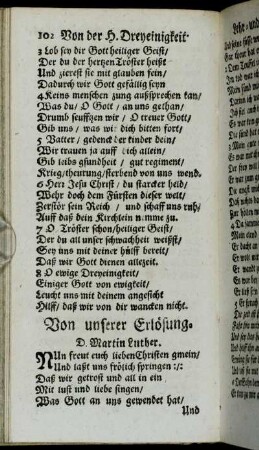 102 Von der H. Dreyeinigkeit
3 Lob sey dir Gott heiliger Geist/
Der du der hertzen Tröster heißt
Und zierest sie mit glauben fein/
Dadurch wir Gott gefällig seyn
4 Keins menschen zung außsprechen kan/
Was du/ O Gott / an uns gethan/
Drumb seufftzen wir / O treuer Gott/
Gib uns / was wir dich bitten fort/
5 Vatter / gedenck der kinder dein/
Wir trauen ja auff dich allein/
Gib leibs gsundheit / gut regiment/
Krieg/theurung/sterbend von uns wend.
6 Herr Jesu Christ / du starcker held/
Wehr doch dem Fürsten dieser welt/
Zerstör sein Reich / und schaff uns ruh/
Auff daß dein Kirchlein nimme zu.
7 O Tröster schon/heiliger Geist/
Der du all unser schwachheit weißst/
Sey uns mit deiner hülff bereit/
Daß wir Gott dienen allezeit.
8 O ewige Dreyeinigkeit/
Einiger Gott von ewigkeit/
Leucht uns mit deinem angesicht
Hilff/ daß wir von dir wancken nicht.
Von unserer Erlösung.
D. Martin Luther.
NUn freut euch lieben Christen gmein/
Und laßt uns frölich springen :/:
Daß wir getrost und all in ein
Mit lust und liebe singen/
Was Gott an uns gewendet hat/
Und